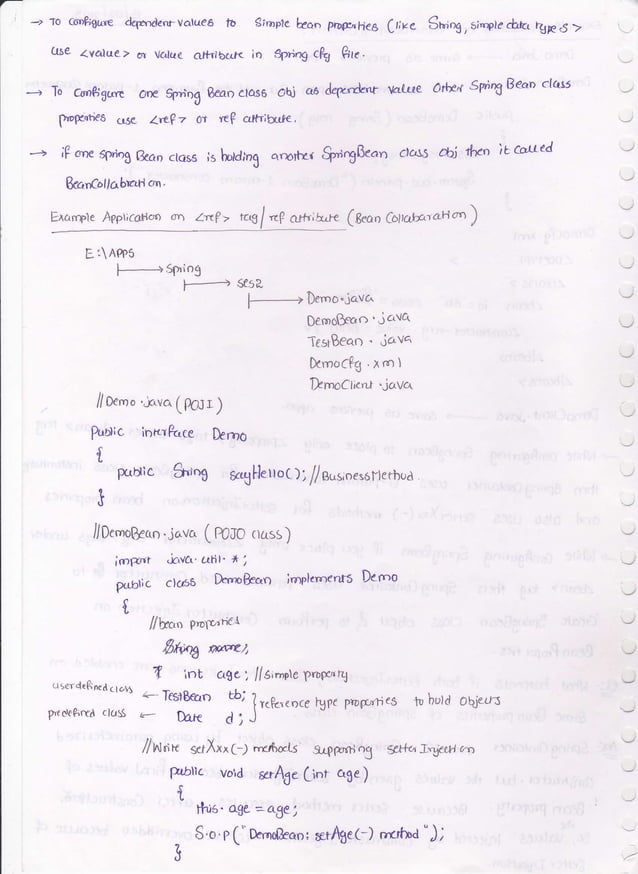 → To configure dependent values to simple bean properties (like String, simple data types>
use <value> or value attribute in spring cfg file.
→ To Configure one Spring Bean class obj as dependent value Other Spring Bean class
properties use <ref> or ref attribute.
→ if one spring Bean class is holding another SpringBean class obj then it called
BeanCollabration.
Example Application on <ref> tag/ref attribute (Bean Collabaration)
E:\APPS
→ Spring
→ Ses2
→ Demo.java
DemoBean.java
TestBean.java
DemoCfg.xml
DemoClient.java
//Demo.java (POJI)
public interface Demo
{
public String sayHello(); //BusinessMethod.
}
//DemoBean.java (POJO class)
import java.util.*;
public class DemoBean implements Demo
{
//bean properties
String name;
int age; //simple property
userdefined class ← TestBean tb; } reference type properties to hold objects
predefined class ← Date d;
//Write setXxx(-) methods supporting setter Injection
public void setAge (int age)
{
this.age = age;
S.o.p("DemoBean: setAge(-) method");
}